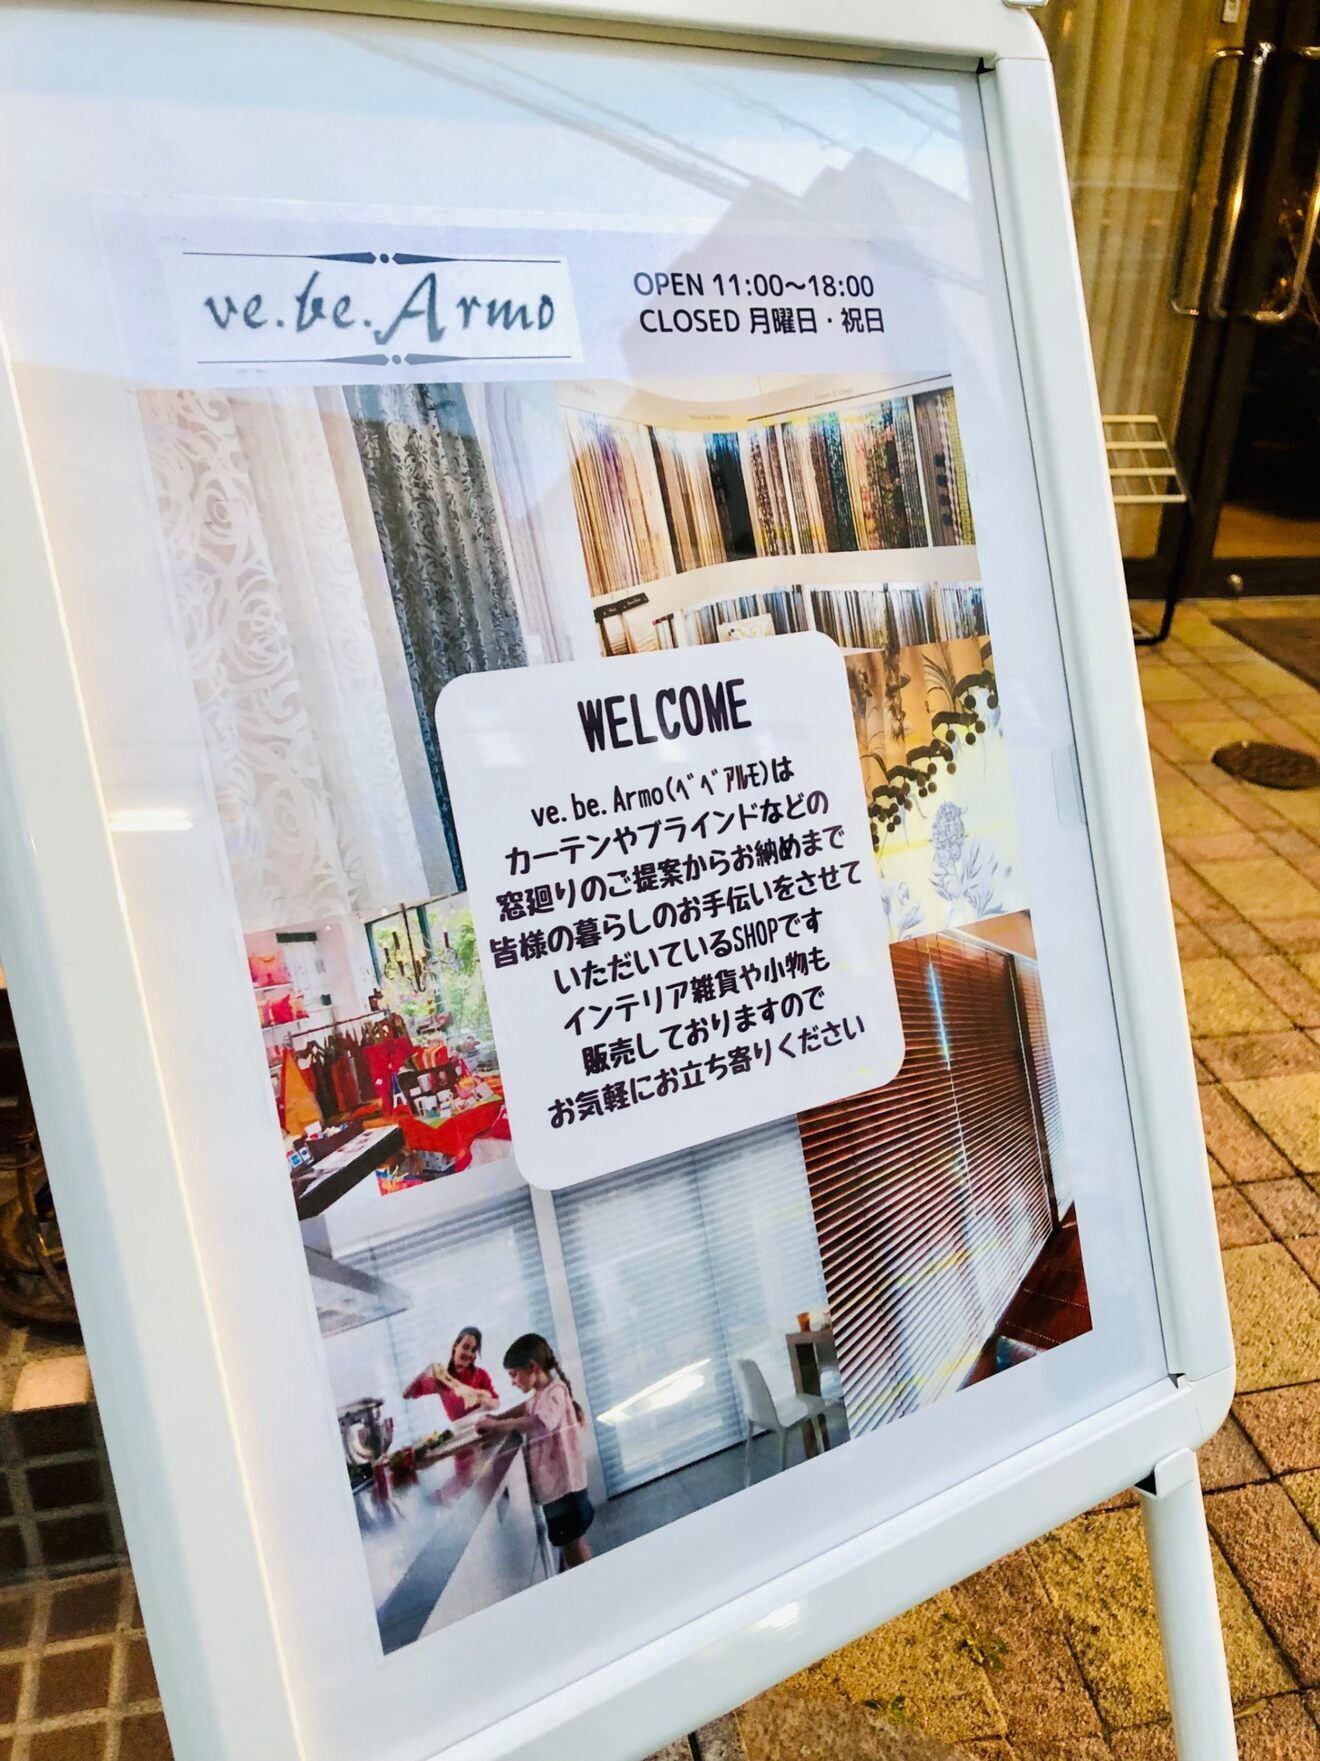 ve.be.Armo
OPEN 11:00〜18:00
CLOSED 月曜日・祝日
WELCOME
ve.be.Armo(ﾍﾞﾍﾞｱﾙﾓ)は
カーテンやブラインドなどの
窓廻りのご提案からお納めまで
皆様の暮らしのお手伝いをさせて
いただいているSHOPです
インテリア雑貨や小物も
販売しておりますので
お気軽にお立ち寄りください